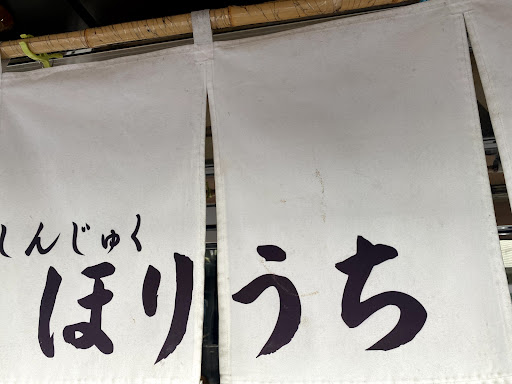 しんじゅく
ほりうち